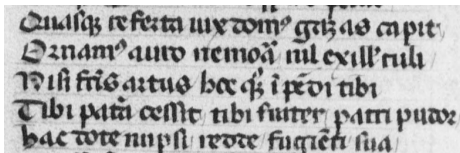 Quasq̃ referta uix dom⁹ gaȥas capit
Ornam⁹ auro nemoã nil exill' tuli
Nisi fr̃is artus hec qȝ ĩpẽdi tibi
Tibi patã cessit / tibi frater / patri pudor
hac dote nupsi / redde / fugiẽti sua /